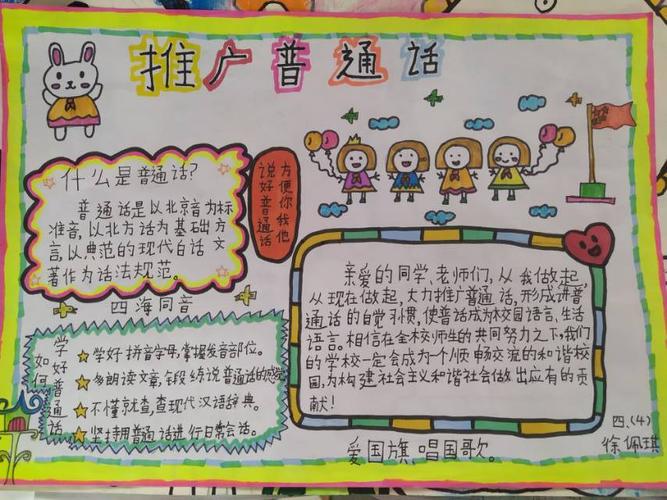 推广普通话
什么是普通话?
普通话是以北京音为标
准音,以北方话为基础方
言,以典范的现代白话文
著作为话法规范。
说好普通话
方便你我他
四海同音
如何
学好普通话
学好拼音字母,掌握发音部位。
多朗读文章,锻练说普通话的感觉
不懂就查,查现代汉语辞典。
坚持用普通话进行日常会话。
亲爱的同学、老师们,从我做起
从现在做起,大力推广普通话,形成讲普
通话的自觉习惯,使普话成为校园语言、生活
语言。相信在全校师生的共同努力之下,我们
的学校一定会成为个顺畅交流的和谐校
园,为构建社会主义和谐社会做出应有的贡
献!
爱国旗、唱国歌。
四、(4)
徐佩琪